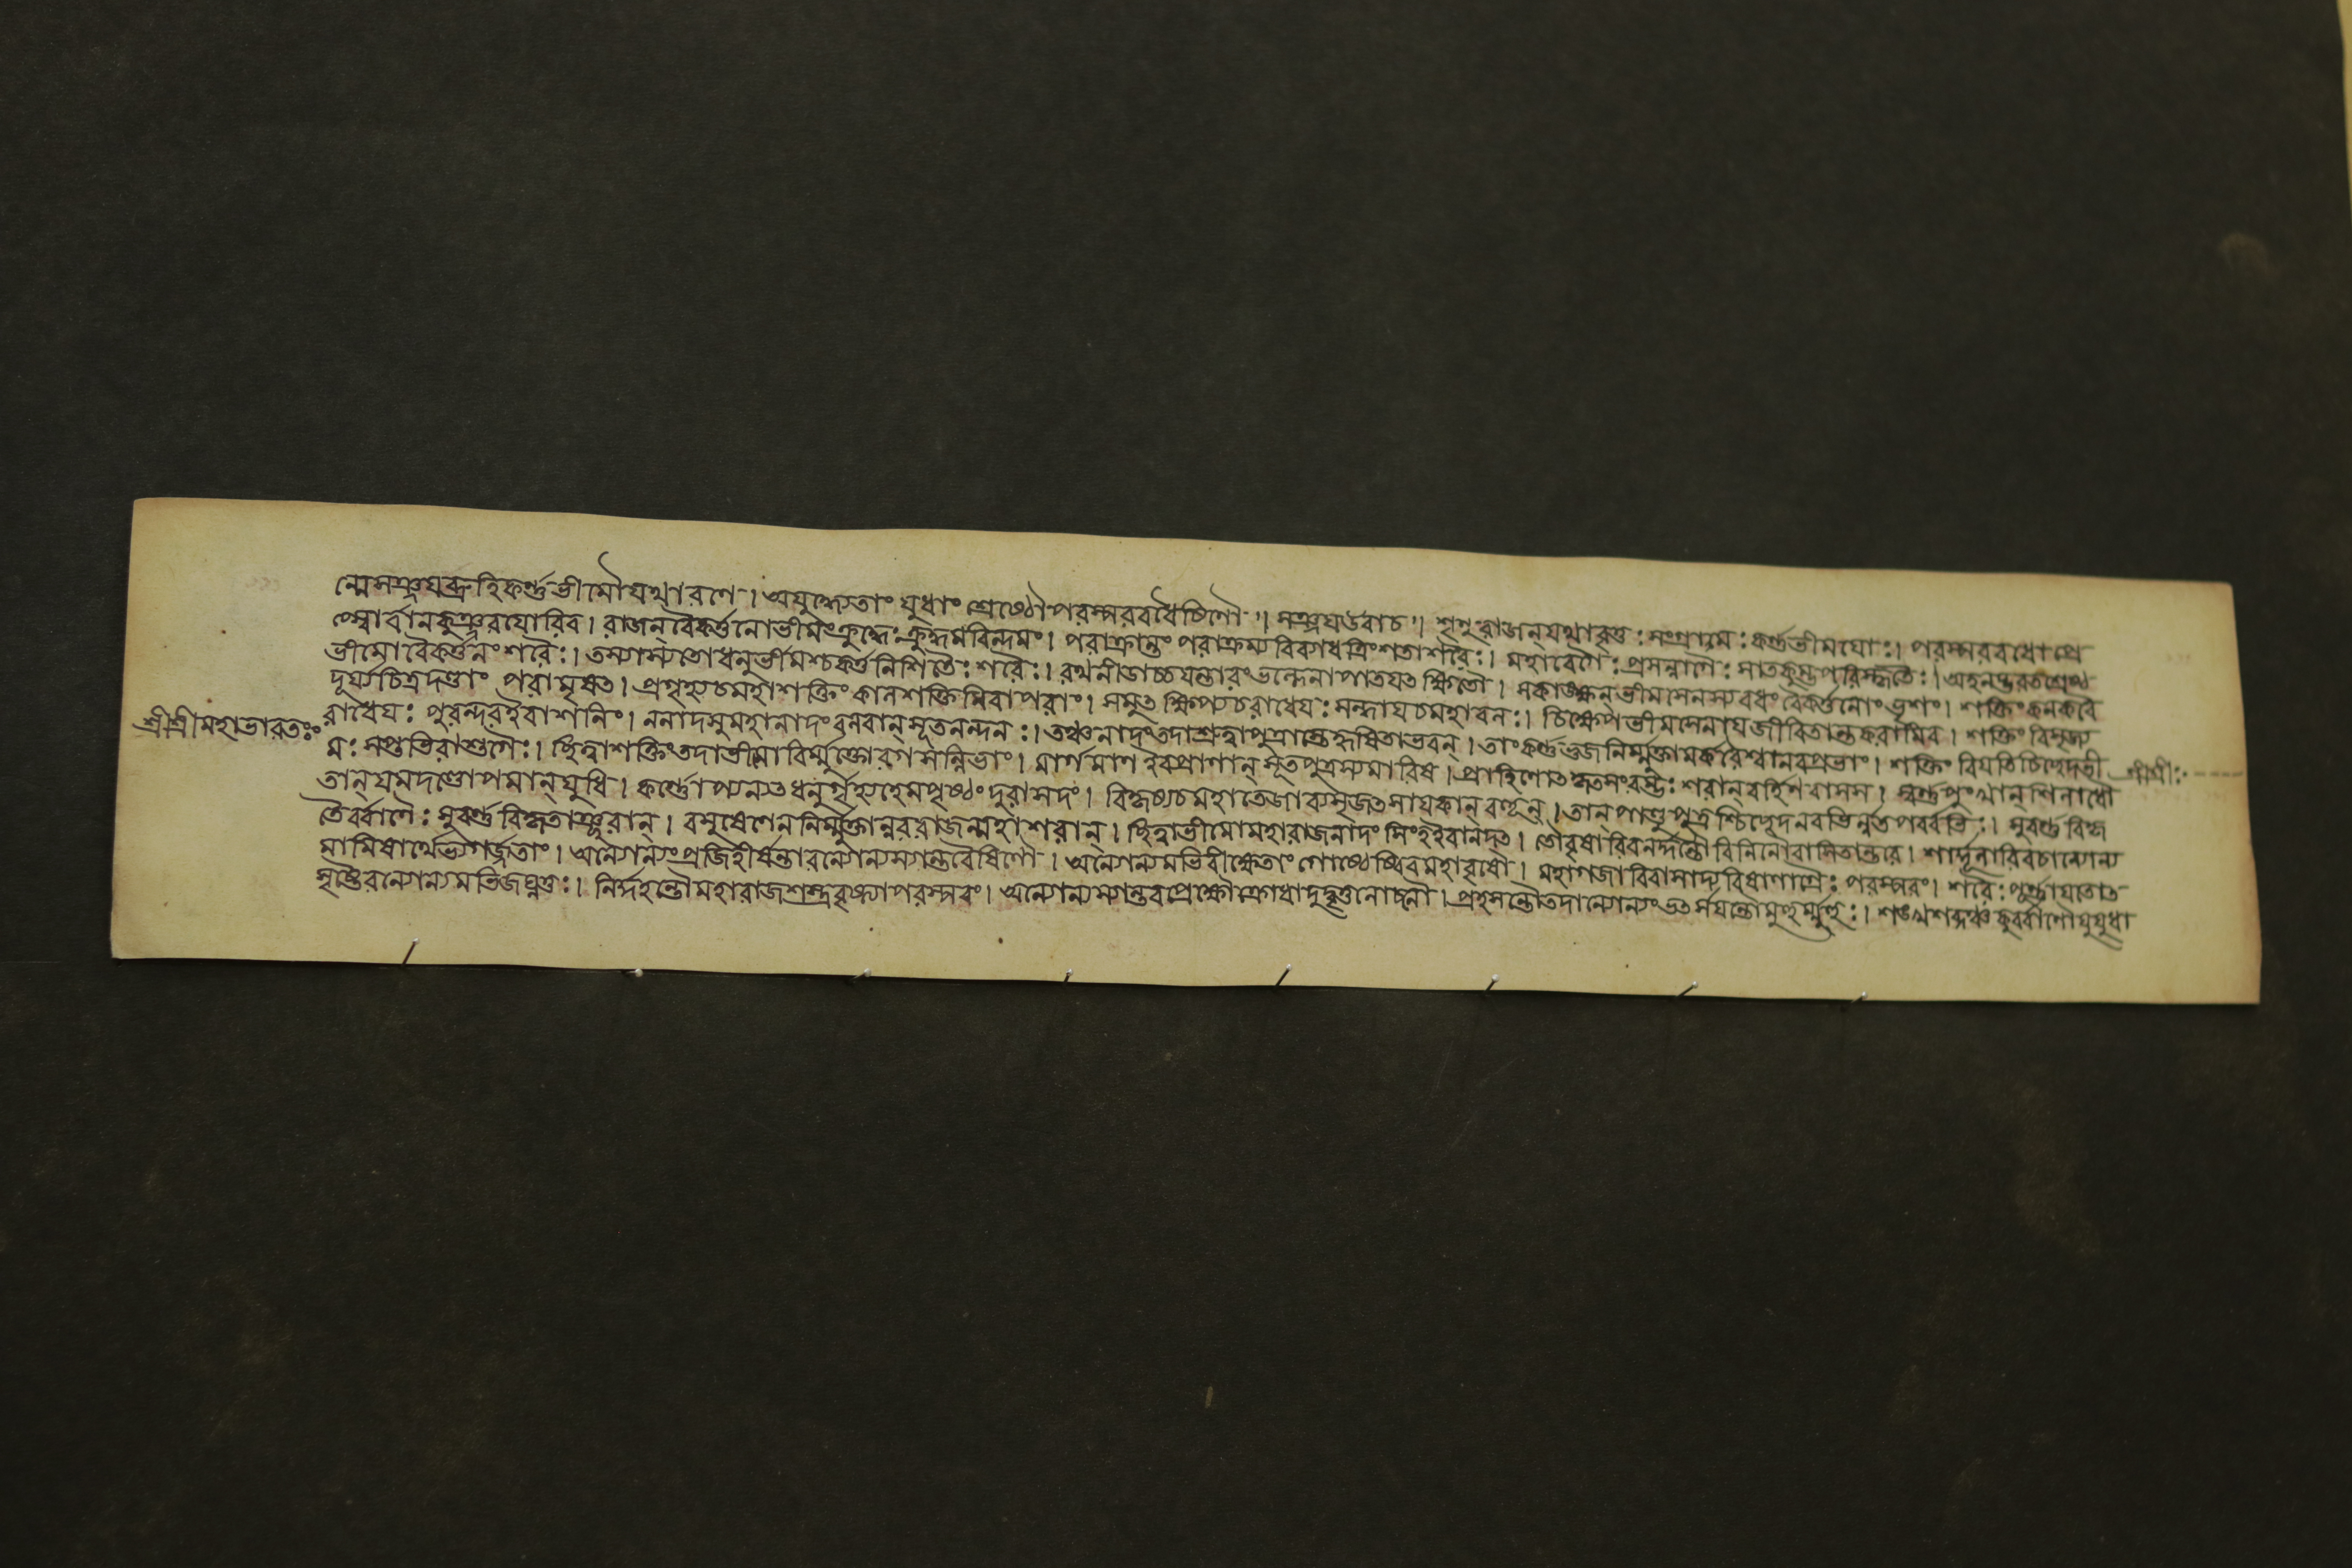 ন্মেসঞ্জযব্রূহিকর্ণ্ণভীমৌযথারণে। অযুদ্ধ্যেতাং যুধাং শ্রেষ্ঠৌপরস্পরবধৈষিণৌ ॥ সঞ্জযউবাচ ॥ শৃণুরাজন্যথাবৃত্তঃ সংগ্রামঃ কর্ণ্ণভীমযোঃ। পরস্পরবধোপ্রে
প্স্বোর্ব্বনকুঞ্জরযোরিব। রাজন্বৈকর্ত্তনোভীমংক্রুদ্ধঃক্রুদ্ধমরিন্দমং। পরাক্রান্তং পরাক্রম্যবিব্যাধত্রিংশতাশরৈঃ। মহাবেগৈঃ প্রসন্নাগ্রৈঃ সাতকুম্ভপরিষ্কৃতৈঃ।
ভীমোবৈকর্ত্তনং শরৈঃ। তস্যাস্যতোধনুর্ভীমশ্চকর্ত্তনিশিতৈঃ শরৈঃ। রথনীডাচ্চযন্তারংভল্লেনাপাতযতক্ষিতৌ। সকাঙ্ক্ষন্ভীমসেনস্যবধং বৈকর্ত্তনোভৃশং। শক্তিং কনকবৈ
দূর্য্যচিত্রদণ্ডাং পরামৃষত। প্রগৃহ্যচমহাশক্তিং কালশক্তিমিবাপরাং। সমুতক্ষিপ্যচরাধেযঃ সন্ধাযচমহাবলঃ। চিক্ষেপভীমসেনাযজীবিতান্তকরামিব। শক্তিং বিসৃজ্য
রাধেযঃ পুরন্দরইবাশনিং। ননাদসুমহানাদংবলবান্সূতনন্দনঃ। তঞ্চনাদংতদাশ্রুত্বাপুত্রাস্তেহৃষিতাভবন্। তাংকর্ণ্ণভুজনির্ম্মুক্তামর্কবৈশ্বানরপ্রভাং। শক্তিং বিযতিচিচ্ছেদভী
শ্রীশ্রীমহাভারতঃ
মঃ সপ্তভিরাশুগৈঃ। ছিত্ত্বাশক্তিংতদাভীমো র্ম্মুক্তোরগসন্নিভাং। মার্গমাণ ইবপ্রাণান্ সূতপুত্রস্যমারিষ। প্রাহিণোত শরান্বর্হিণবাসস। স্বর্ণ্ণপুংখান্শিলাধৌ
শ্রীশ্রীঃ
তান্যমদণ্ডোপমান্যুধি। কর্ণ্ণোপ্যন্যতধনুর্গৃহ্যহেমপৃষ্ঠং দুরাসদং। বিকৃষ্যচমহাতেজাব্যসৃজতসাযকান্বহূন্। তান্পাণ্ডুপুত্রশ্চিচ্ছেদনবভির্ন্নতপর্ব্বভিঃ। সুবর্ণ্ণবিকৃ
তৈর্ব্বাণৈঃ সুবর্ণ্ণবিকৃতাঞ্ছরান্। বসুষেণেননির্ম্মুক্তান্নবরাজন্মহাশরান্। ছিত্ত্বাভীমোমহারাজনাদং সিংহইবানদত। তৌবৃষাবিবনর্দ্দন্তৌবলিনৌবাসিতান্তরে। শার্দূলাবিবচান্যোন্য
মামিষার্থেভ্যগর্জ্জতাং। অন্যোন্যংপ্রজিহীর্ষন্তাবন্যোন্যস্যান্তরৈষিণৌ। অন্যোন্যমভিবীক্ষেতাং গোষ্ঠেষ্বিবমহাবৃষৌ। মহাগজাবিবাসাদ্যবিষাণাগ্রৈঃ পরস্পরং। শরৈঃ পূর্ণ্ণাযতোত
সৃষ্টৈরন্যোন্যমভিজঘ্নতুঃ। নির্দ্দহন্তৌমহারাজশস্ত্রবৃষ্ট্যাপরস্পরং। অন্যোন্যম প্রহসন্তৌতদান্যোন্যংভর্তসযন্তৌমুহুর্ম্মুহুঃ। শঙ্খশব্দঞ্চকুর্ব্বাণৌযুযুধা